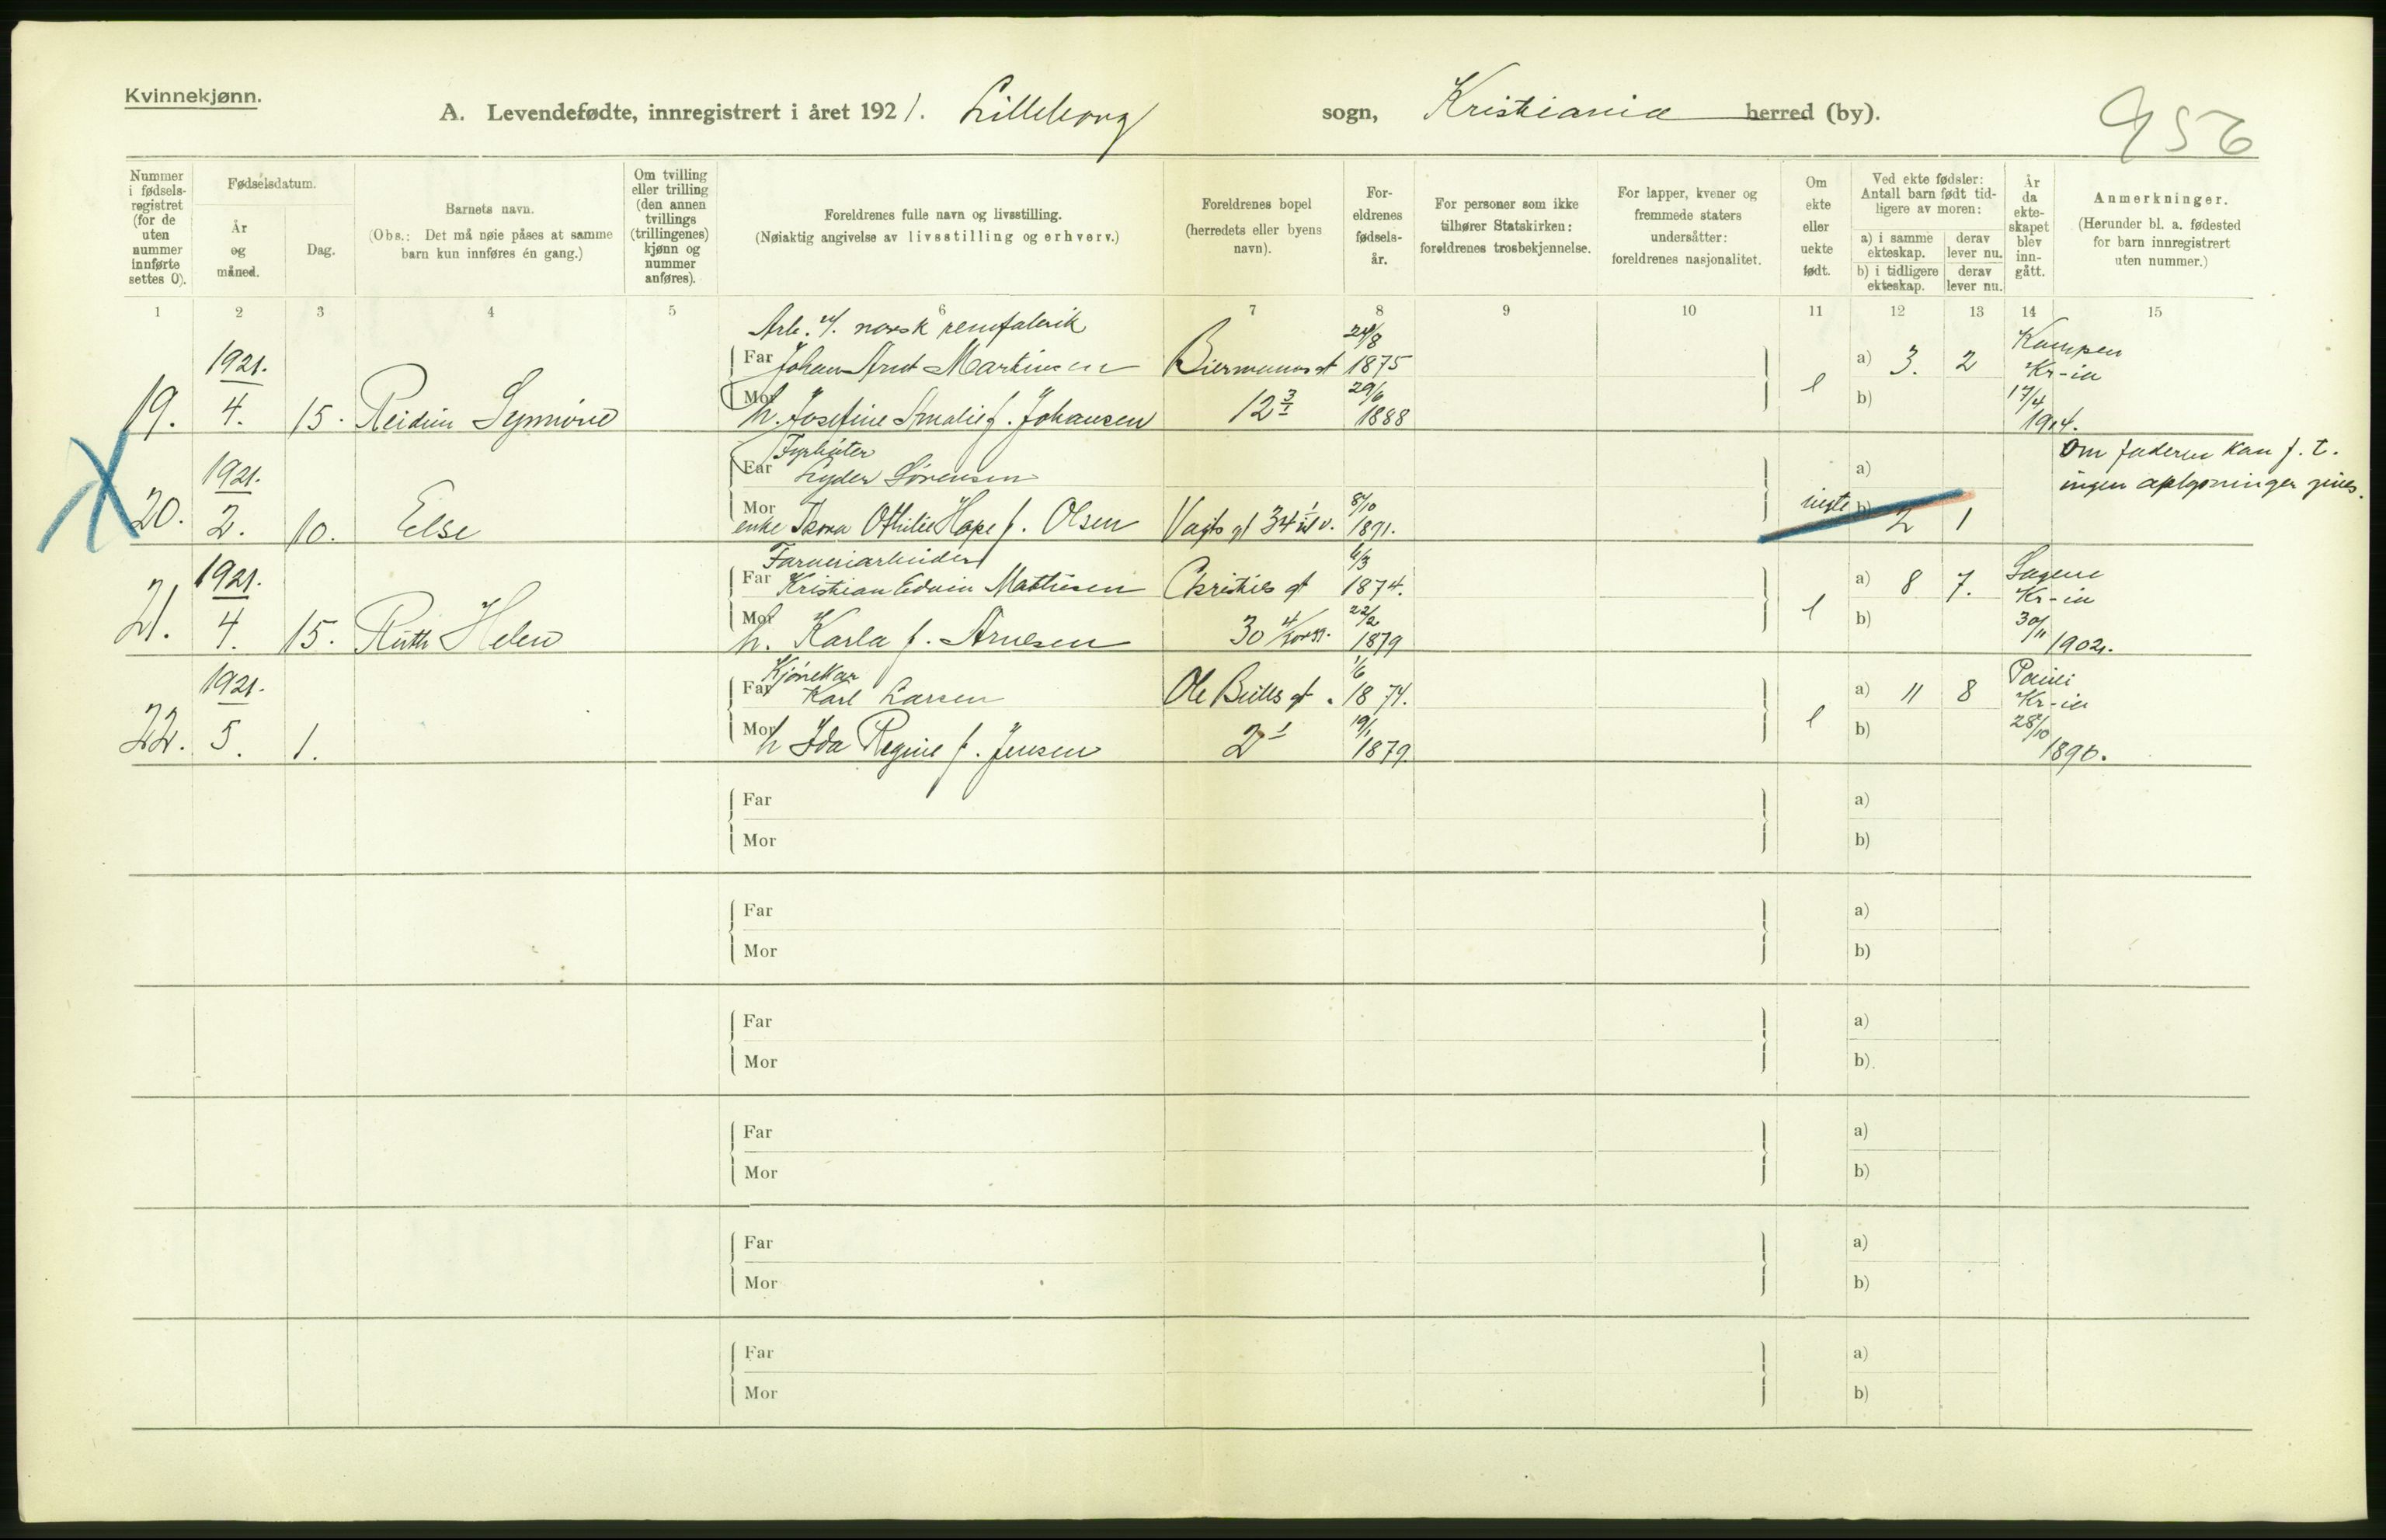 Kvinnekjønn.
A. Levendefødte, innregistrert i året 1921. Lilleborg sogn, Kristiania herred (by).
956
Nummer i fødselsregistret (for de uten nummer innførte settes 0).
Fødselsdatum.
År og måned.
Dag.
Barnets navn.
(Obs.: Det må nøie påses at samme barn kun innføres én gang.)
Om tvilling eller trilling (den annen tvillings (trillingenes) kjønn og nummer anføres).
Foreldrenes fulle navn og livsstilling.
(Nøiaktig angivelse av livsstilling og erhverv.)
Foreldrenes bopel (herredets eller byens navn).
Foreldrenes fødselsår.
For personer som ikke tilhører Statskirken: foreldrenes trosbekjennelse.
For lapper, kvener og fremmede staters undersåtter: foreldrenes nasjonalitet.
Om ekte eller uekte født.
Ved ekte fødsler: Antall barn født tidligere av moren:
a) i samme ekteskap.
derav lever nu.
b) i tidligere ekteskap.
derav lever nu.
År da ekteskapet blev inngått.
Anmerkninger.
(Herunder bl. a. fødested for barn innregistrert uten nummer.)
1 2 3 4 5 6 7 8 9 10 11 12 13 14 15
Arb. v. norsk remfabrik
19. 1921. 4. 15. Reidun Synnöve
Far Johan Arnt Martinsen Biermannsgt 24/8 1875
Mor h. Josefine Amalie f. Johansen 12 3/1 29/6 1888
e a) 3. 2 b) Kampen Kr-ia 17/4 1914.
20. 1921. 2. 10. Else
Fyrbøter
Far Lyder Sørensen
Mor enke Thora Othilie Hope f. Olsen Vogts gt 34 8/10 1891.
uegte a) b) 2 1
Om faderen kan f. t.
ingen oplysninger gives.
21. 1921. 4. 15. Ruth Helen
Farveriarbeider
Far Kristian Edvin Mathisen Christies gt 6/3 1874.
Mor h. Karla f. Arnesen 30 22/2 1879
e a) 8 7. b) Sagene Kr-ia 30/11 1902.
22. 1921. 5. 1.
Kjørekar
Far Karl Larsen Ole Bulls gt. 1/6 1874.
Mor h Ida Regine f. Jensen 2 1 19/1 1879.
e a) 11 8 b) Pauli Kr-ia 28/10 1896.
Far a)
Mor b)
Far a)
Mor b)
Far a)
Mor b)
Far a)
Mor b)
Far a)
Mor b)
Far a)
Mor b)